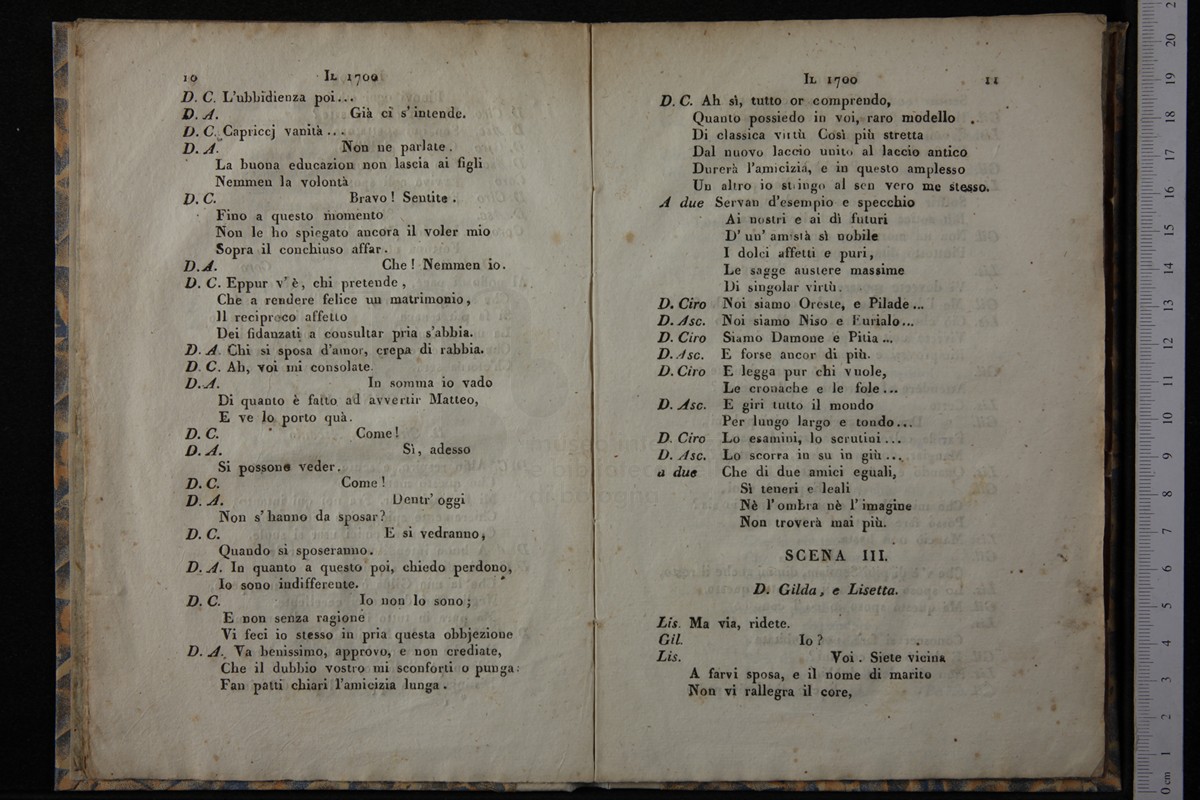 10 IL 1700
D. C. L'ubbidienza poi...
D. A. Già ci s'intende.
D. C. Capriccj vanità ...
D. A. Non ne parlate.
La buona educazion non lascia ai figli
Nemmen la volontà
D. C. Bravo! Sentite.
Fino a questo momento
Non le ho spiegato ancora il voler mio
Sopra il conchiuso affar.
D. A. Che! Nemmen io.
D. C. Eppur v'è, chi pretende,
Che a rendere felice un matrimonio,
Il reciproco affetto
Dei fidanzati a consultar pria s'abbia.
D. A. Chi si sposa d'amor, crepa di rabbia.
D. C. Ah, voi mi consolate.
D. A. In somma io vado
Di quanto è fatto ad avvertir Matteo,
E ve lo porto quà.
D. C. Come!
D. A. Sì, adesso
Si possono veder.
D. C. Come!
D. A. Dentr' oggi
Non s'hanno da sposar?
D. C. E si vedranno,
Quando si sposeranno.
D. A. In quanto a questo poi, chiedo perdono,
Io sono indifferente.
D. C. Io non lo sono;
E non senza ragione
Vi feci io stesso in pria questa obbjezione
D. A. Va benissimo, approvo, e non crediate,
Che il dubbio vostro mi sconforti o punga:
Fan patti chiari l'amicizia lunga.
IL 1700 11
D. C. Ah sì, tutto or comprendo,
Quanto possiedo in voi, raro modello
Di classica virtù Così più stretta
Dal nuovo laccio unito al laccio antico
Durerà l'amicizia, e in questo amplesso
Un altro io stringo al sen vero me stesso.
A due Servan d'esempio e specchio
Ai nostri e ai dì futuri
D' un' amistà sì nobile
I dolci affetti e puri,
Le sagge austere massime
Di singolar virtù.
D. Ciro Noi siamo Oreste, e Pilade...
D. Asc. Noi siamo Niso e Eurialo...
D. Ciro Siamo Damone e Pitia...
D. Asc. E forse ancor di più.
D. Ciro E legga pur chi vuole,
Le cronache e le fole...
D. Asc. E giri tutto il mondo
Per lungo largo e tondo...
D. Ciro Lo esamini, lo scrutini...
D. Asc. Lo scorra in su in giù...
a due Che di due amici eguali,
Sì teneri e leali
Nè l'ombra nè l'imagine
Non troverà mai più.
SCENA III.
D. Gilda, e Lisetta.
Lis. Ma via, ridete.
Gil. Io?
Lis. Voi. Siete vicina
A farvi sposa, e il nome di marito
Non vi rallegra il core,